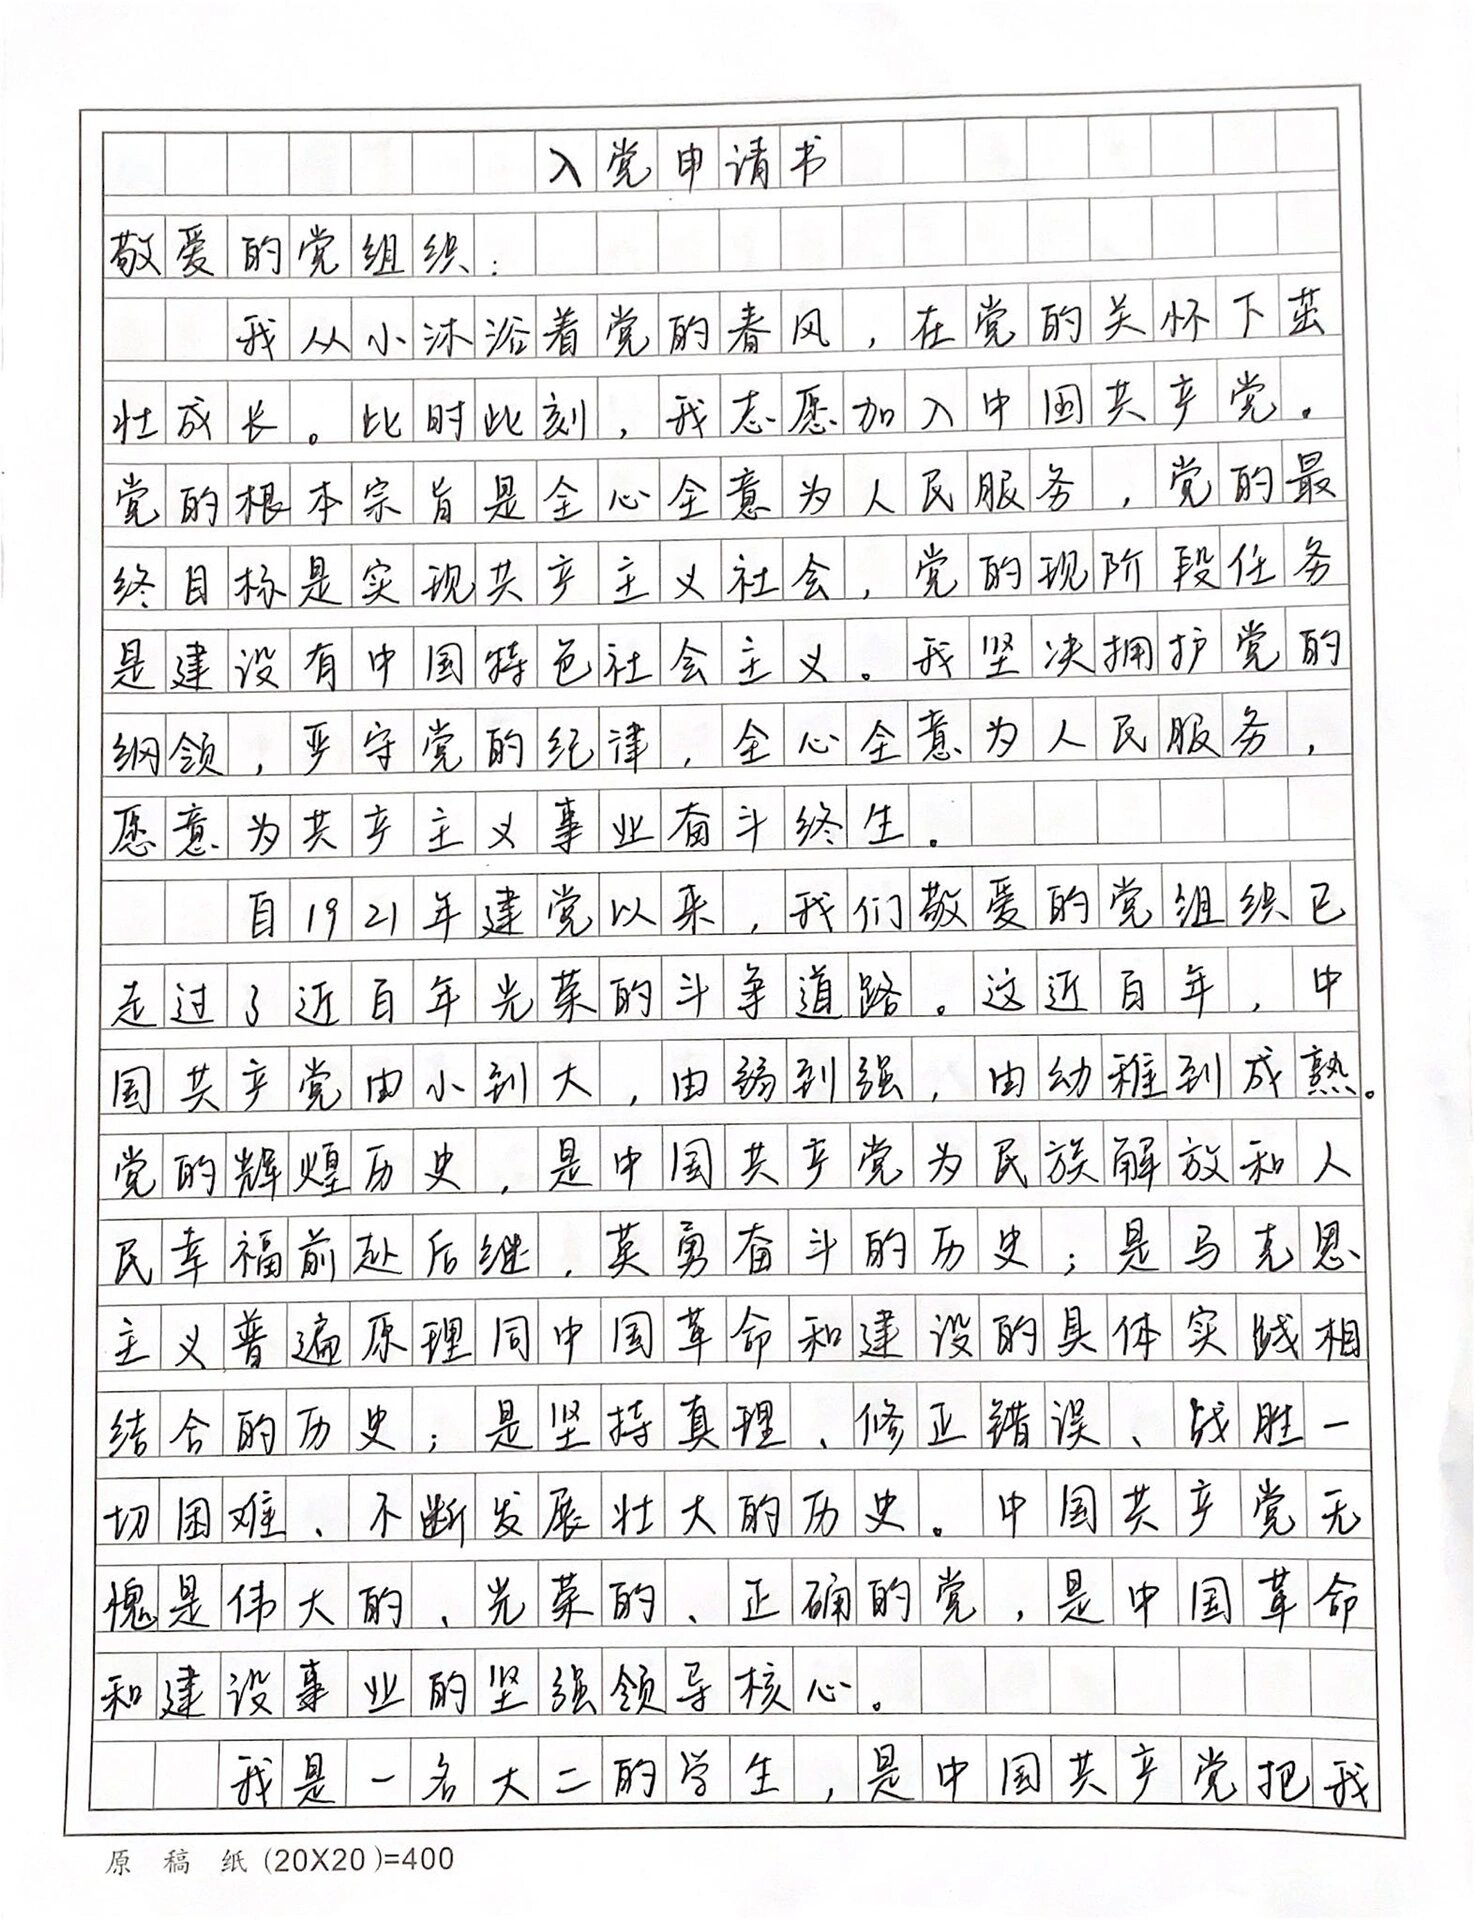 入党申请书
敬爱的党组织：
我从小沐浴着党的春风，在党的关怀下茁
壮成长。此时此刻，我志愿加入中国共产党。
党的根本宗旨是全心全意为人民服务，党的最
终目标是实现共产主义社会，党的现阶段任务
是建设有中国特色社会主义。我坚决拥护党的
纲领，严守党的纪律，全心全意为人民服务，
愿意为共产主义事业奋斗终生。
自1921年建党以来，我们敬爱的党组织已
走过了近百年光荣的斗争道路。这近百年，中
国共产党由小到大，由弱到强，由幼稚到成熟。
党的辉煌历史，是中国共产党为民族解放和人
民幸福前赴后继，英勇奋斗的历史；是马克思
主义普遍原理同中国革命和建设的具体实践相
结合的历史；是坚持真理、修正错误、战胜一
切困难、不断发展壮大的历史。中国共产党无
愧是伟大的、光荣的、正确的党，是中国革命
和建设事业的坚强领导核心。
我是一名大二的学生，是中国共产党把我
原稿纸(20X20)=400